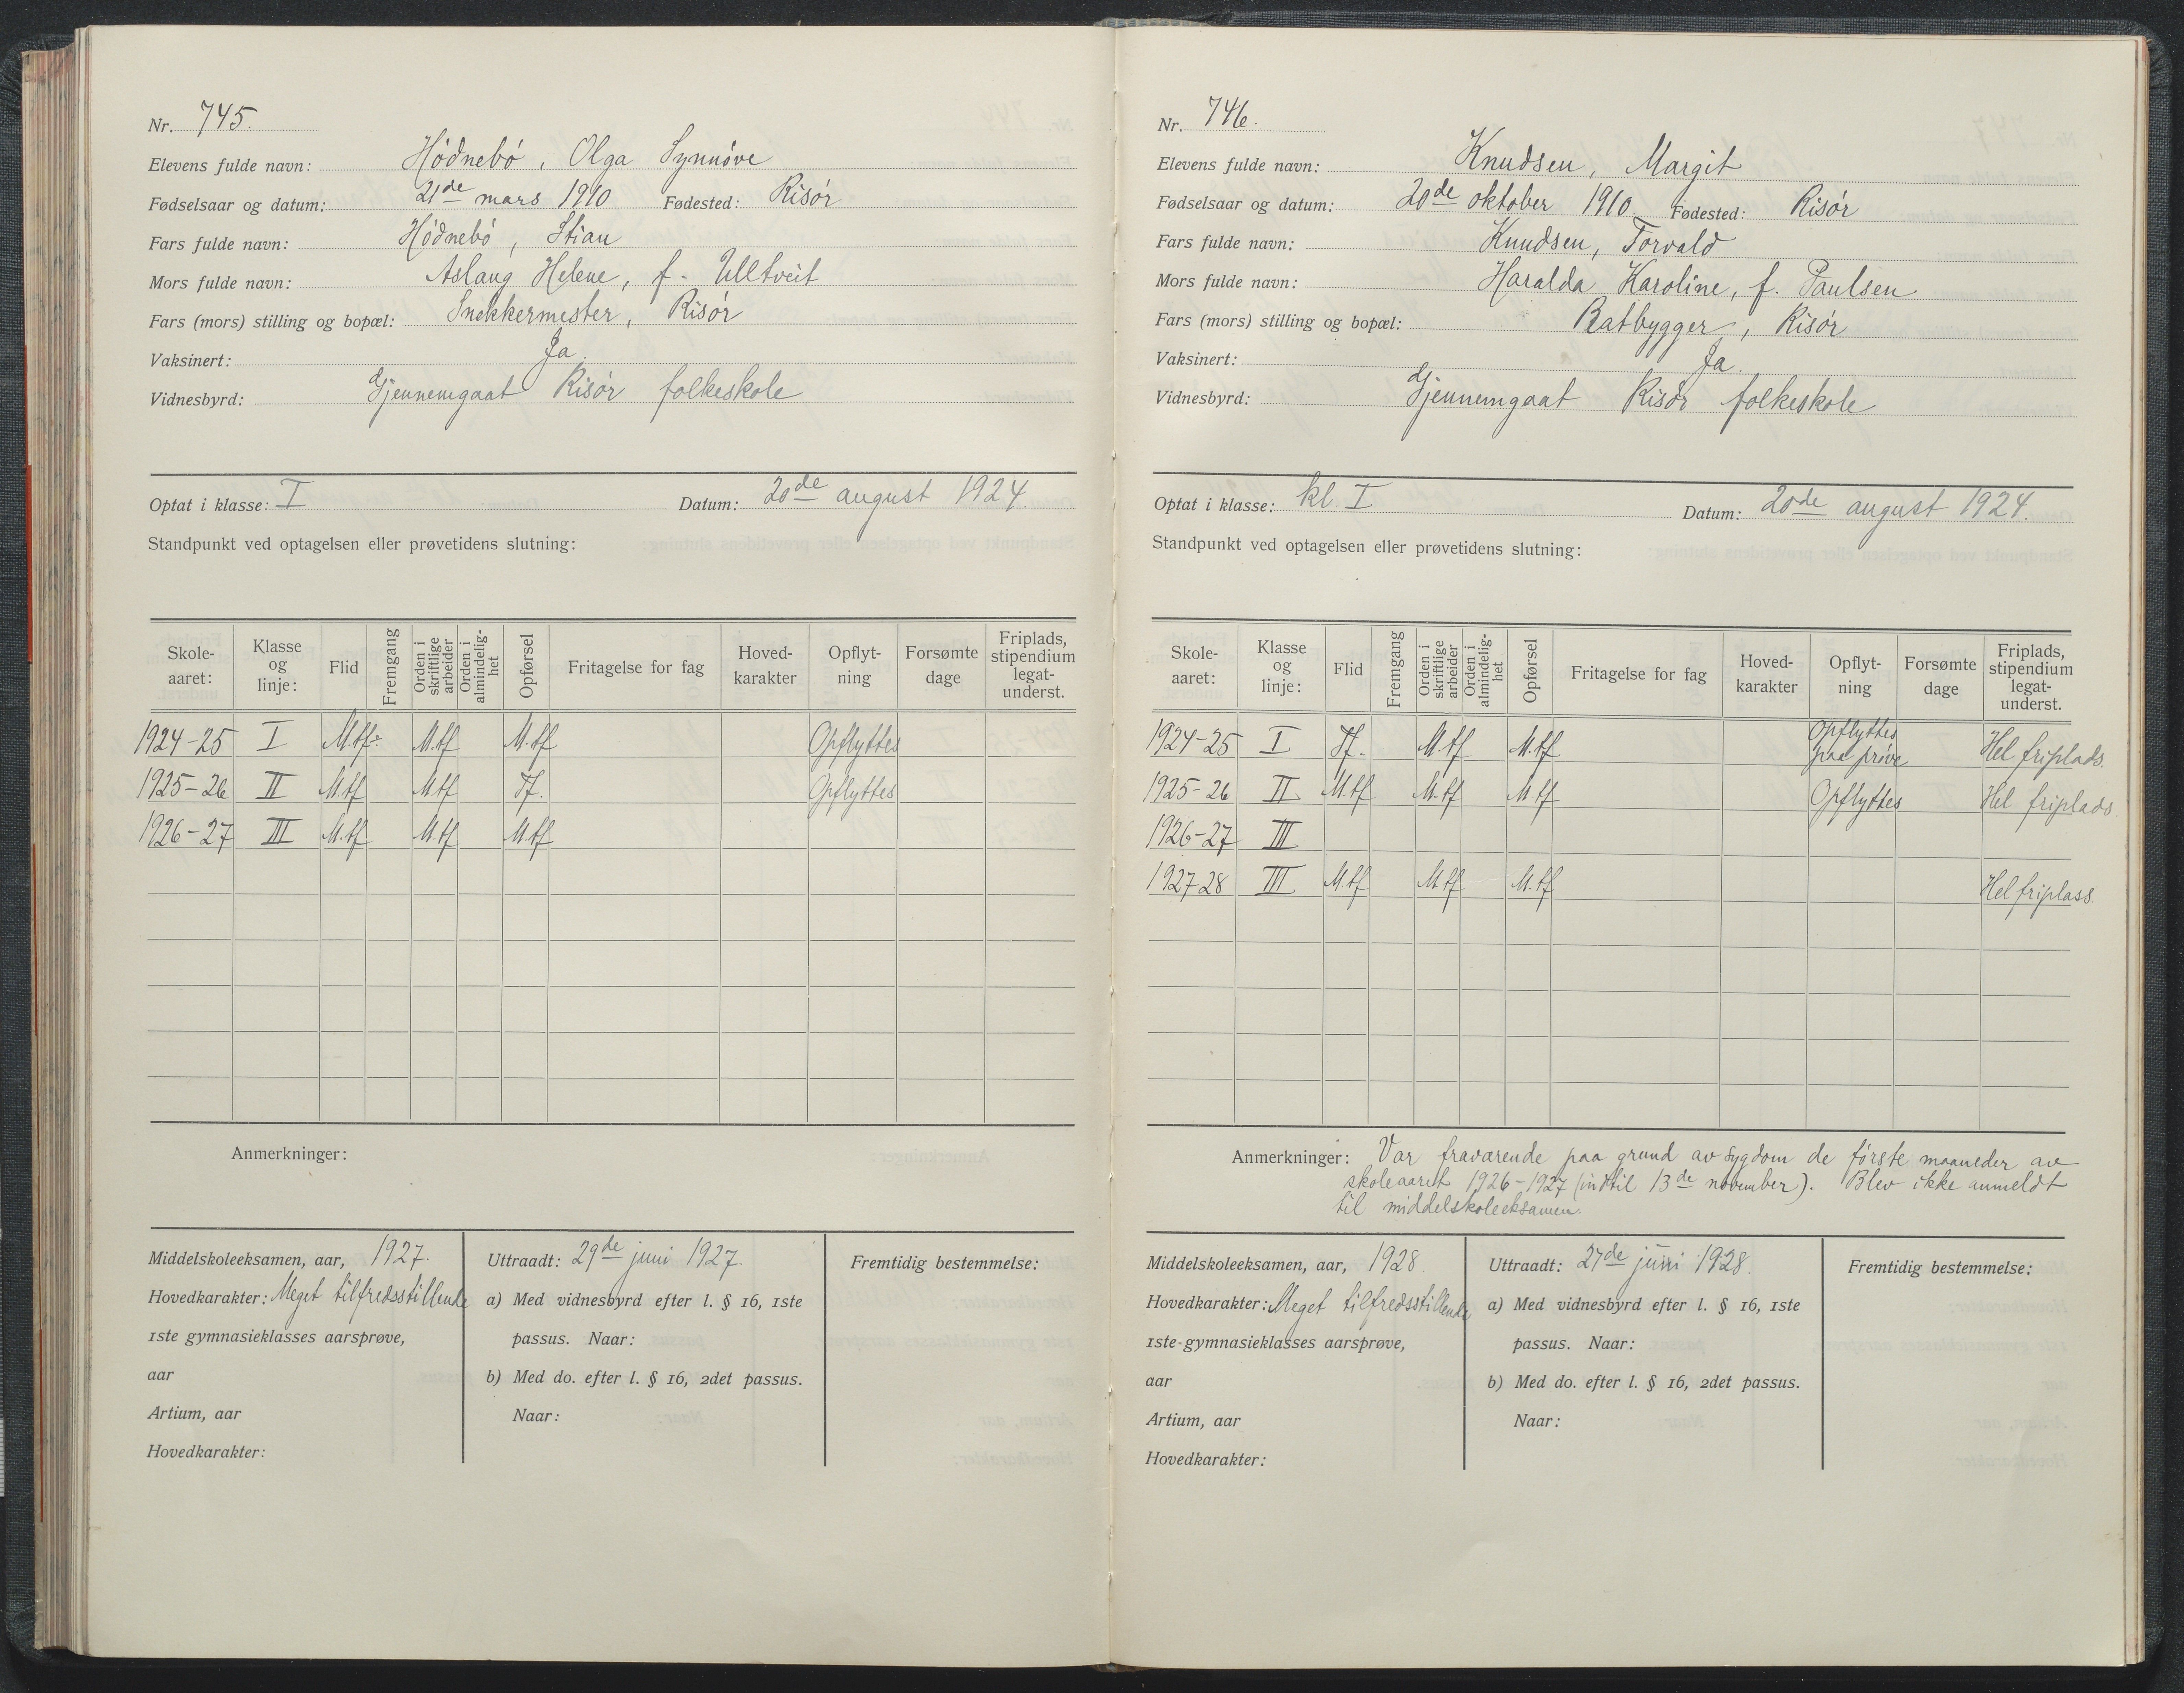 Nr. 745.
Elevens fulde navn: Hödnebö, Olga Synnöve
Fødselsaar og datum: 21de mars 1910 Fødested: Risör
Fars fulde navn: Hödnebö, Stian
Mors fulde navn: Aslaug Helene, f. Ulltveit
Fars (mors) stilling og bopæl: Snekkermester, Risör
Vaksinert: Ja.
Vidnesbyrd: Gjennemgaat Risör folkeskole
Optat i klasse: I Datum: 20de august 1924.
Standpunkt ved optagelsen eller prøvetidens slutning:
Skole-aaret: Klasse og linje: Flid Fremgang Orden i skriftlige arbeider Orden i almindelig-het Opførsel Fritagelse for fag Hoved-karakter Opflyt-ning Forsømte dage Friplads, stipendium legat-underst.
1924-25 I M.tf÷ M.tf M.tf Opflyttes
1925-26 II M.tf M.tf Tf. Opflyttes
1926-27 III M.tf M.tf M.tf
Anmerkninger:
Middelskoleeksamen, aar, 1927.
Hovedkarakter: Meget tilfredsstillende
1ste gymnasieklasses aarsprøve,
aar
Artium, aar
Hovedkarakter:
Uttraadt: 29de juni 1927.
a) Med vidnesbyrd efter l. § 16, 1ste
passus. Naar:
b) Med do. efter l. § 16, 2det passus.
Naar:
Fremtidig bestemmelse:
Nr. 746.
Elevens fulde navn: Knudsen, Margit
Fødselsaar og datum: 20de oktober 1910 Fødested: Risör
Fars fulde navn: Knudsen, Torvald
Mors fulde navn: Haralda Karoline, f. Paulsen
Fars (mors) stilling og bopæl: Baatbygger, Risör
Vaksinert: Ja.
Vidnesbyrd: Gjennemgaat Risör folkeskole
Optat i klasse: kl. I Datum: 20de august 1924.
Standpunkt ved optagelsen eller prøvetidens slutning:
Skole-aaret: Klasse og linje: Flid Fremgang Orden i skriftlige arbeider Orden i almindelig-het Opførsel Fritagelse for fag Hoved-karakter Opflyt-ning Forsømte dage Friplads, stipendium legat-underst.
1924-25 I Tf. M.tf M.tf Opflyttes paa pröve Hel friplads.
1925-26 II M.tf M.tf M.tf Opflyttes Hel friplads.
1926-27 III
1927 28 III M.tf M.tf M.tf Hel friplass.
Anmerkninger: Var fraværende paa grund av sygdom de förste maaneder av
skoleaaret 1926-1927 (indtil 13de november). Blev ikke anmeldt
til middelskoleeksamen.
Middelskoleeksamen, aar, 1928.
Hovedkarakter: Meget tilfredsstillende
1ste gymnasieklasses aarsprøve,
aar
Artium, aar
Hovedkarakter:
Uttraadt: 27de juni 1928.
a) Med vidnesbyrd efter l. § 16, 1ste
passus. Naar:
b) Med do. efter l. § 16, 2det passus.
Naar:
Fremtidig bestemmelse: